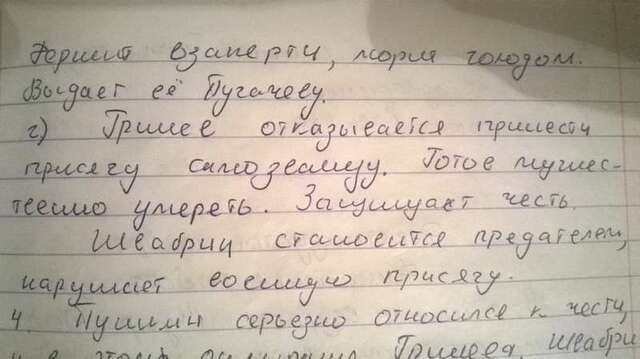 держит взаперти, моря голодом.
Выдает её Пугачеву.
г) Гринев отказывается принести
присягу самозванцу. Готов мужес-
твенно умереть. Защищает честь.
Швабрин становится предателем,
нарушает военную присягу.
4. Пушкин серьезно относился к чести,
Гринев. Швабри